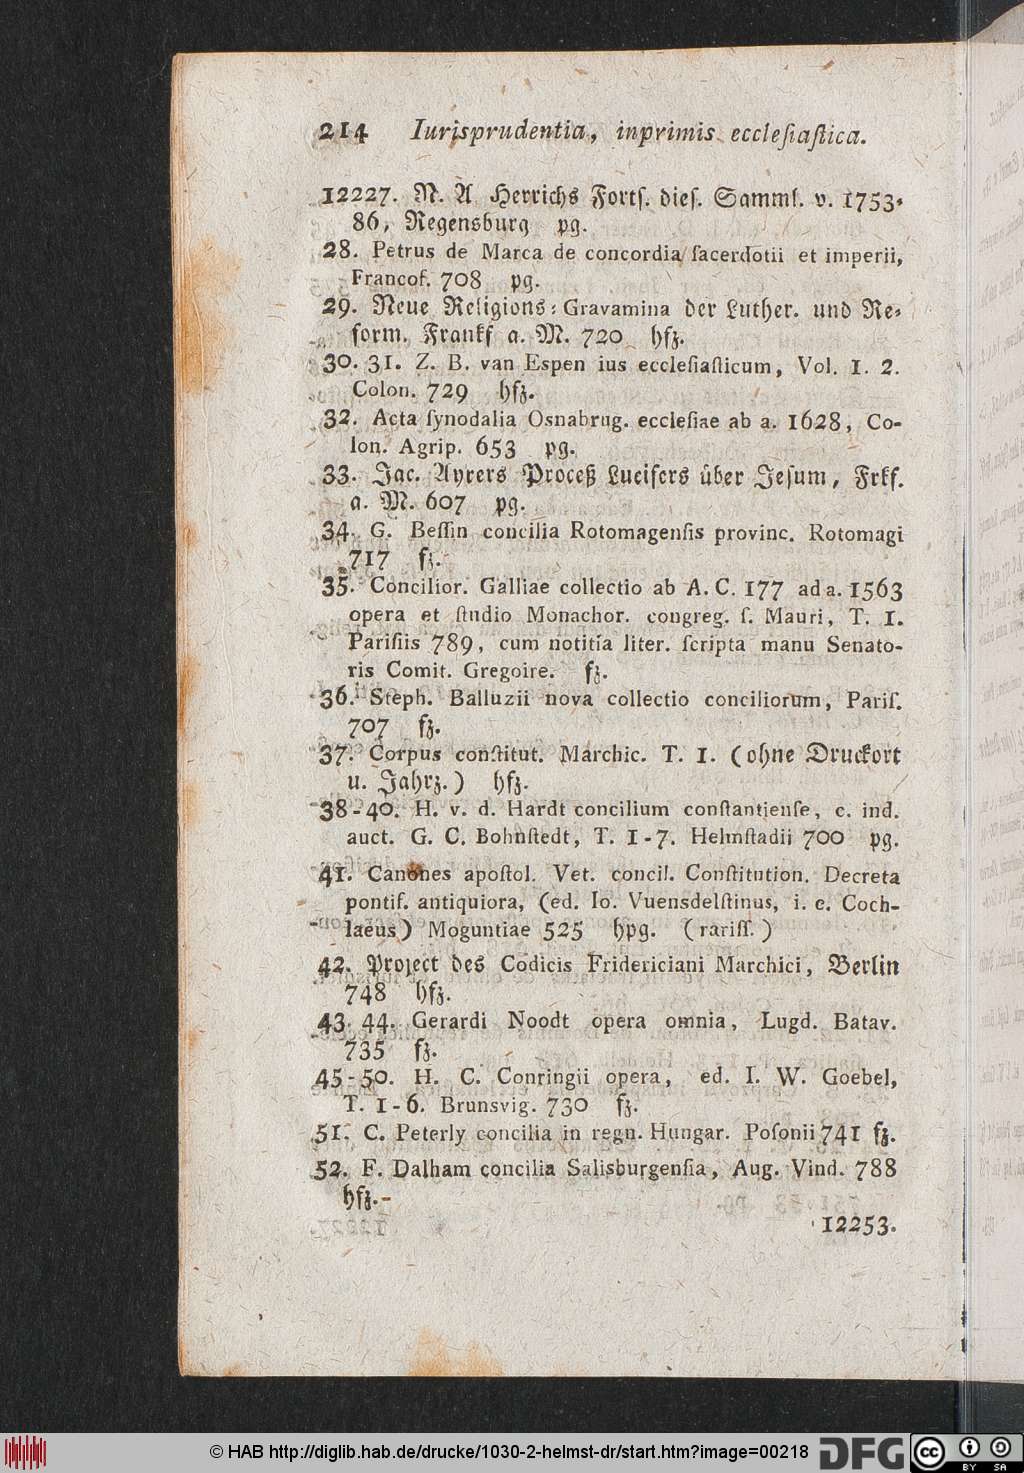 214 Iurisprudentia, inprimis eccleſiaſtica.
12227. N. A Herrichs Fortſ. dieſ. Samml. v. 1753-
86, Regensburg pg.
28. Petrus de Marca de concordia ſacerdotii et imperii,
Francof. 708 pg.
29. Neue Religions-Gravamina der Luther. und Re-
form. Frankf a. M. 720 hfz.
30. 31. Z. B. van Espen ius eccleſiaſticum, Vol. 1. 2.
Colon. 729 hfz.
32. Acta ſynodalia Osnabrug. eccleſiae ab a. 1628, Co-
lon. Agrip. 653 pg.
33. Jac. Ayrers Proceß Lucifers über Jeſum, Frkf.
a. M. 607 pg.
34. G. Beſſin concilia Rotomagenſis provinc. Rotomagi
717 fz.
35. Concilior. Galliae collectio ab A. C. 177 ad a. 1563
opera et ſtudio Monachor. congreg. ſ. Mauri, T. 1.
Pariſiis 789, cum notitia liter. ſcripta manu Senato-
ris Comit. Gregoire. fz.
36. Steph. Balluzii nova collectio conciliorum, Pariſ.
707 fz.
37. Corpus conſtitut. Marchic. T. 1. (ohne Druckort
u. Jahrz.) hfz.
38-40. H. v. d. Hardt concilium conſtantienſe, c. ind.
auct. G. C. Bohnſtedt, T. 1-7. Helmſtadii 700 pg.
41. Canones apoſtol. Vet. concil. Conſtitution. Decreta
pontif. antiquiora, (ed. Io. Vuensdelſtinus, i. e. Coch-
laeus) Moguntiae 525 hpg. (rariſſ.)
42. Project des Codicis Fridericiani Marchici, Berlin
748 hfz.
43. 44. Gerardi Noodt opera omnia, Lugd. Batav.
735 fz.
45-50. H. C. Conringii opera, ed. I. W. Goebel,
T. 1-6. Brunsvig. 730 fz.
51. C. Peterly concilia in regn. Hungar. Poſonii 741 fz.
52. F. Dalham concilia Salisburgenſia, Aug. Vind. 788
hfz.
12253.
© HAB http://diglib.hab.de/drucke/1030-2-helmst-dr/start.htm?image=00218
DFG cc BY SA